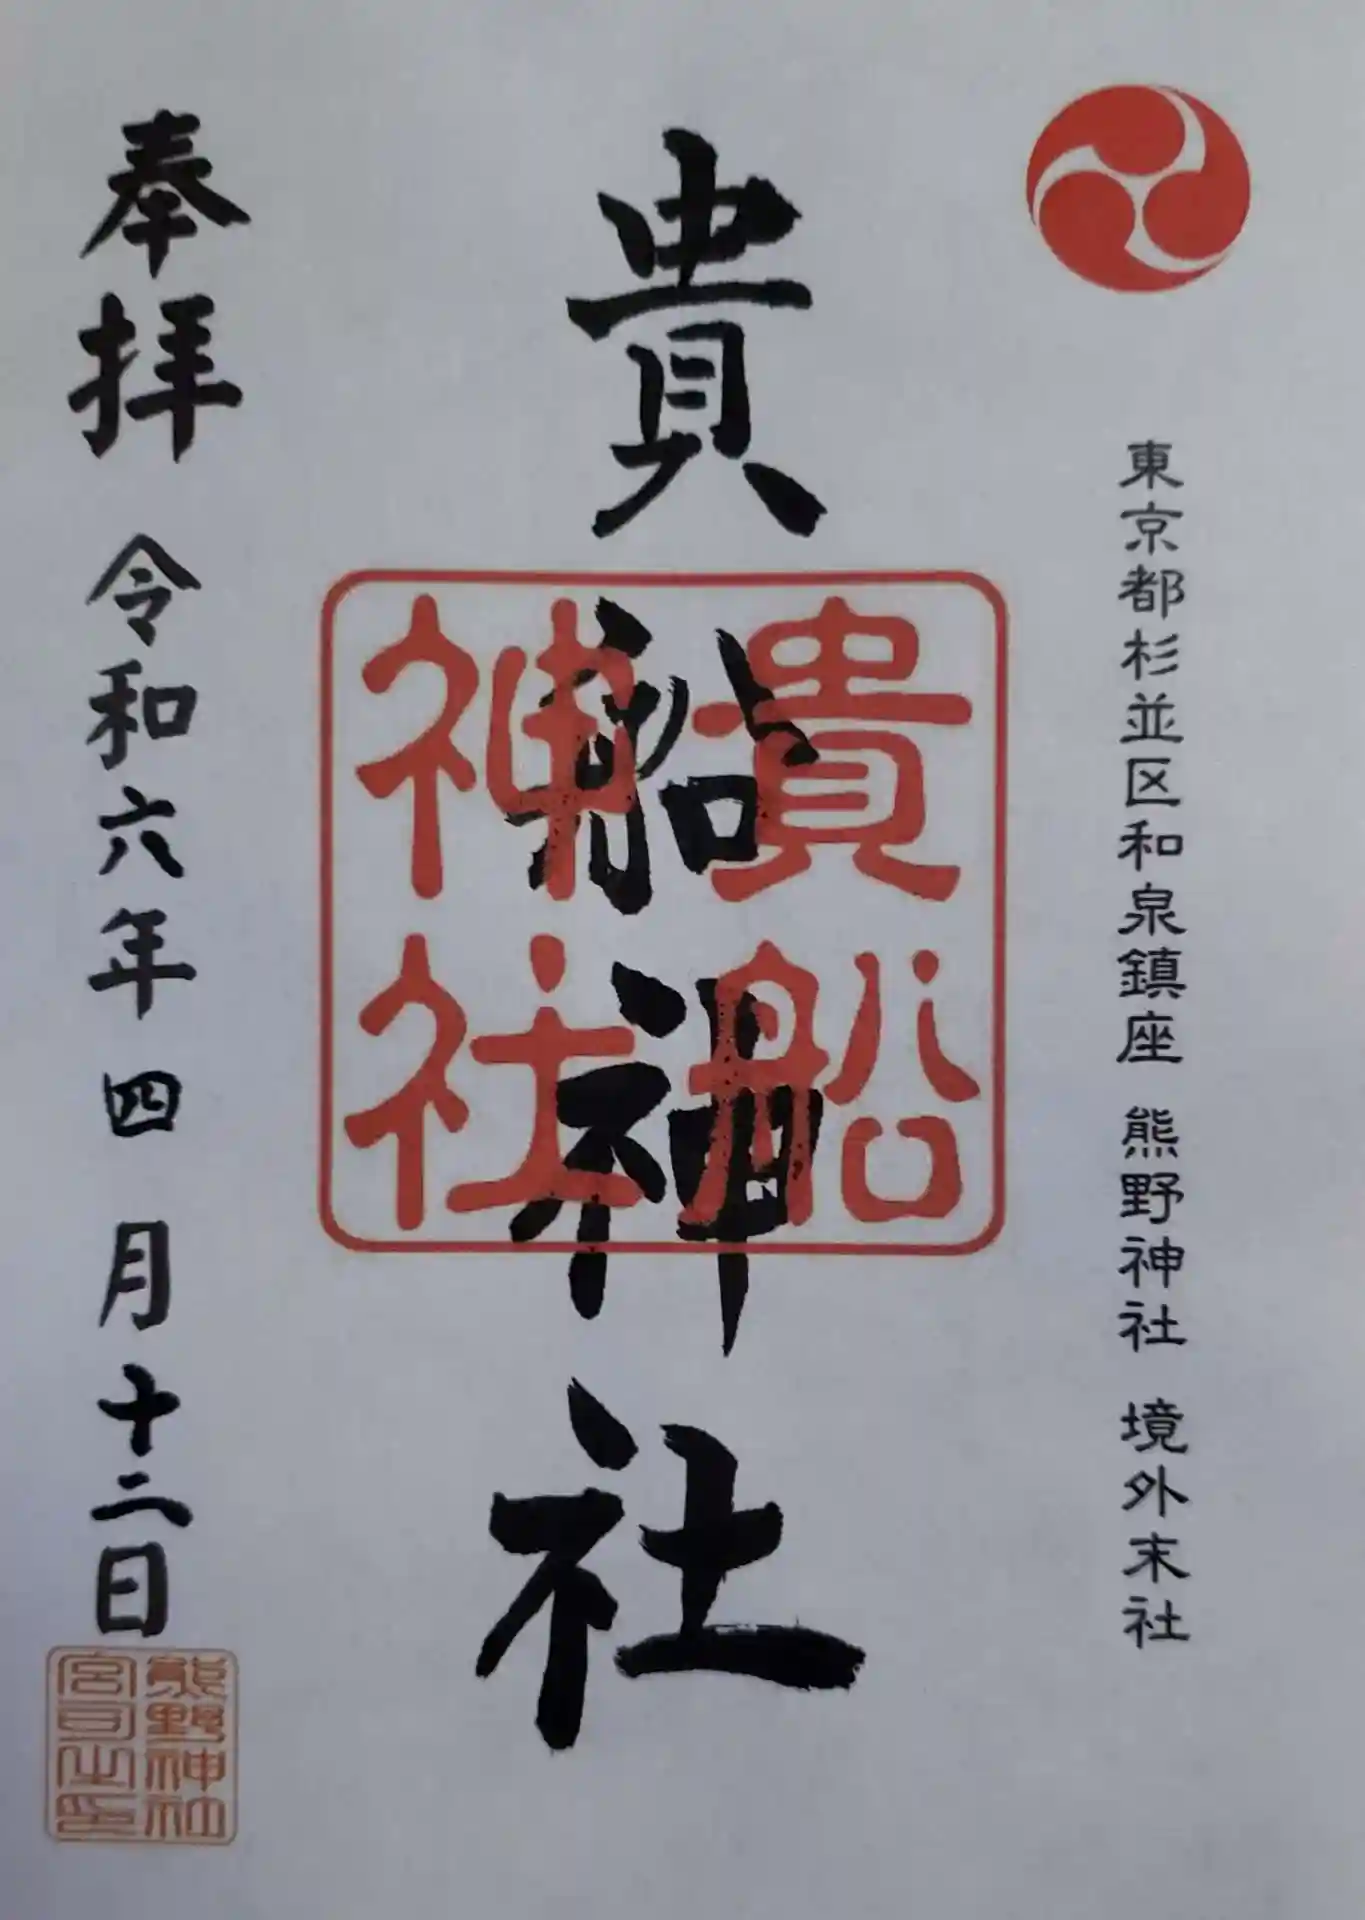 東京都杉並区和泉鎮座 熊野神社 境外末社
貴船神社
貴船
神社
奉拝 令和六年四月十二日
熊野神社
宮司之印